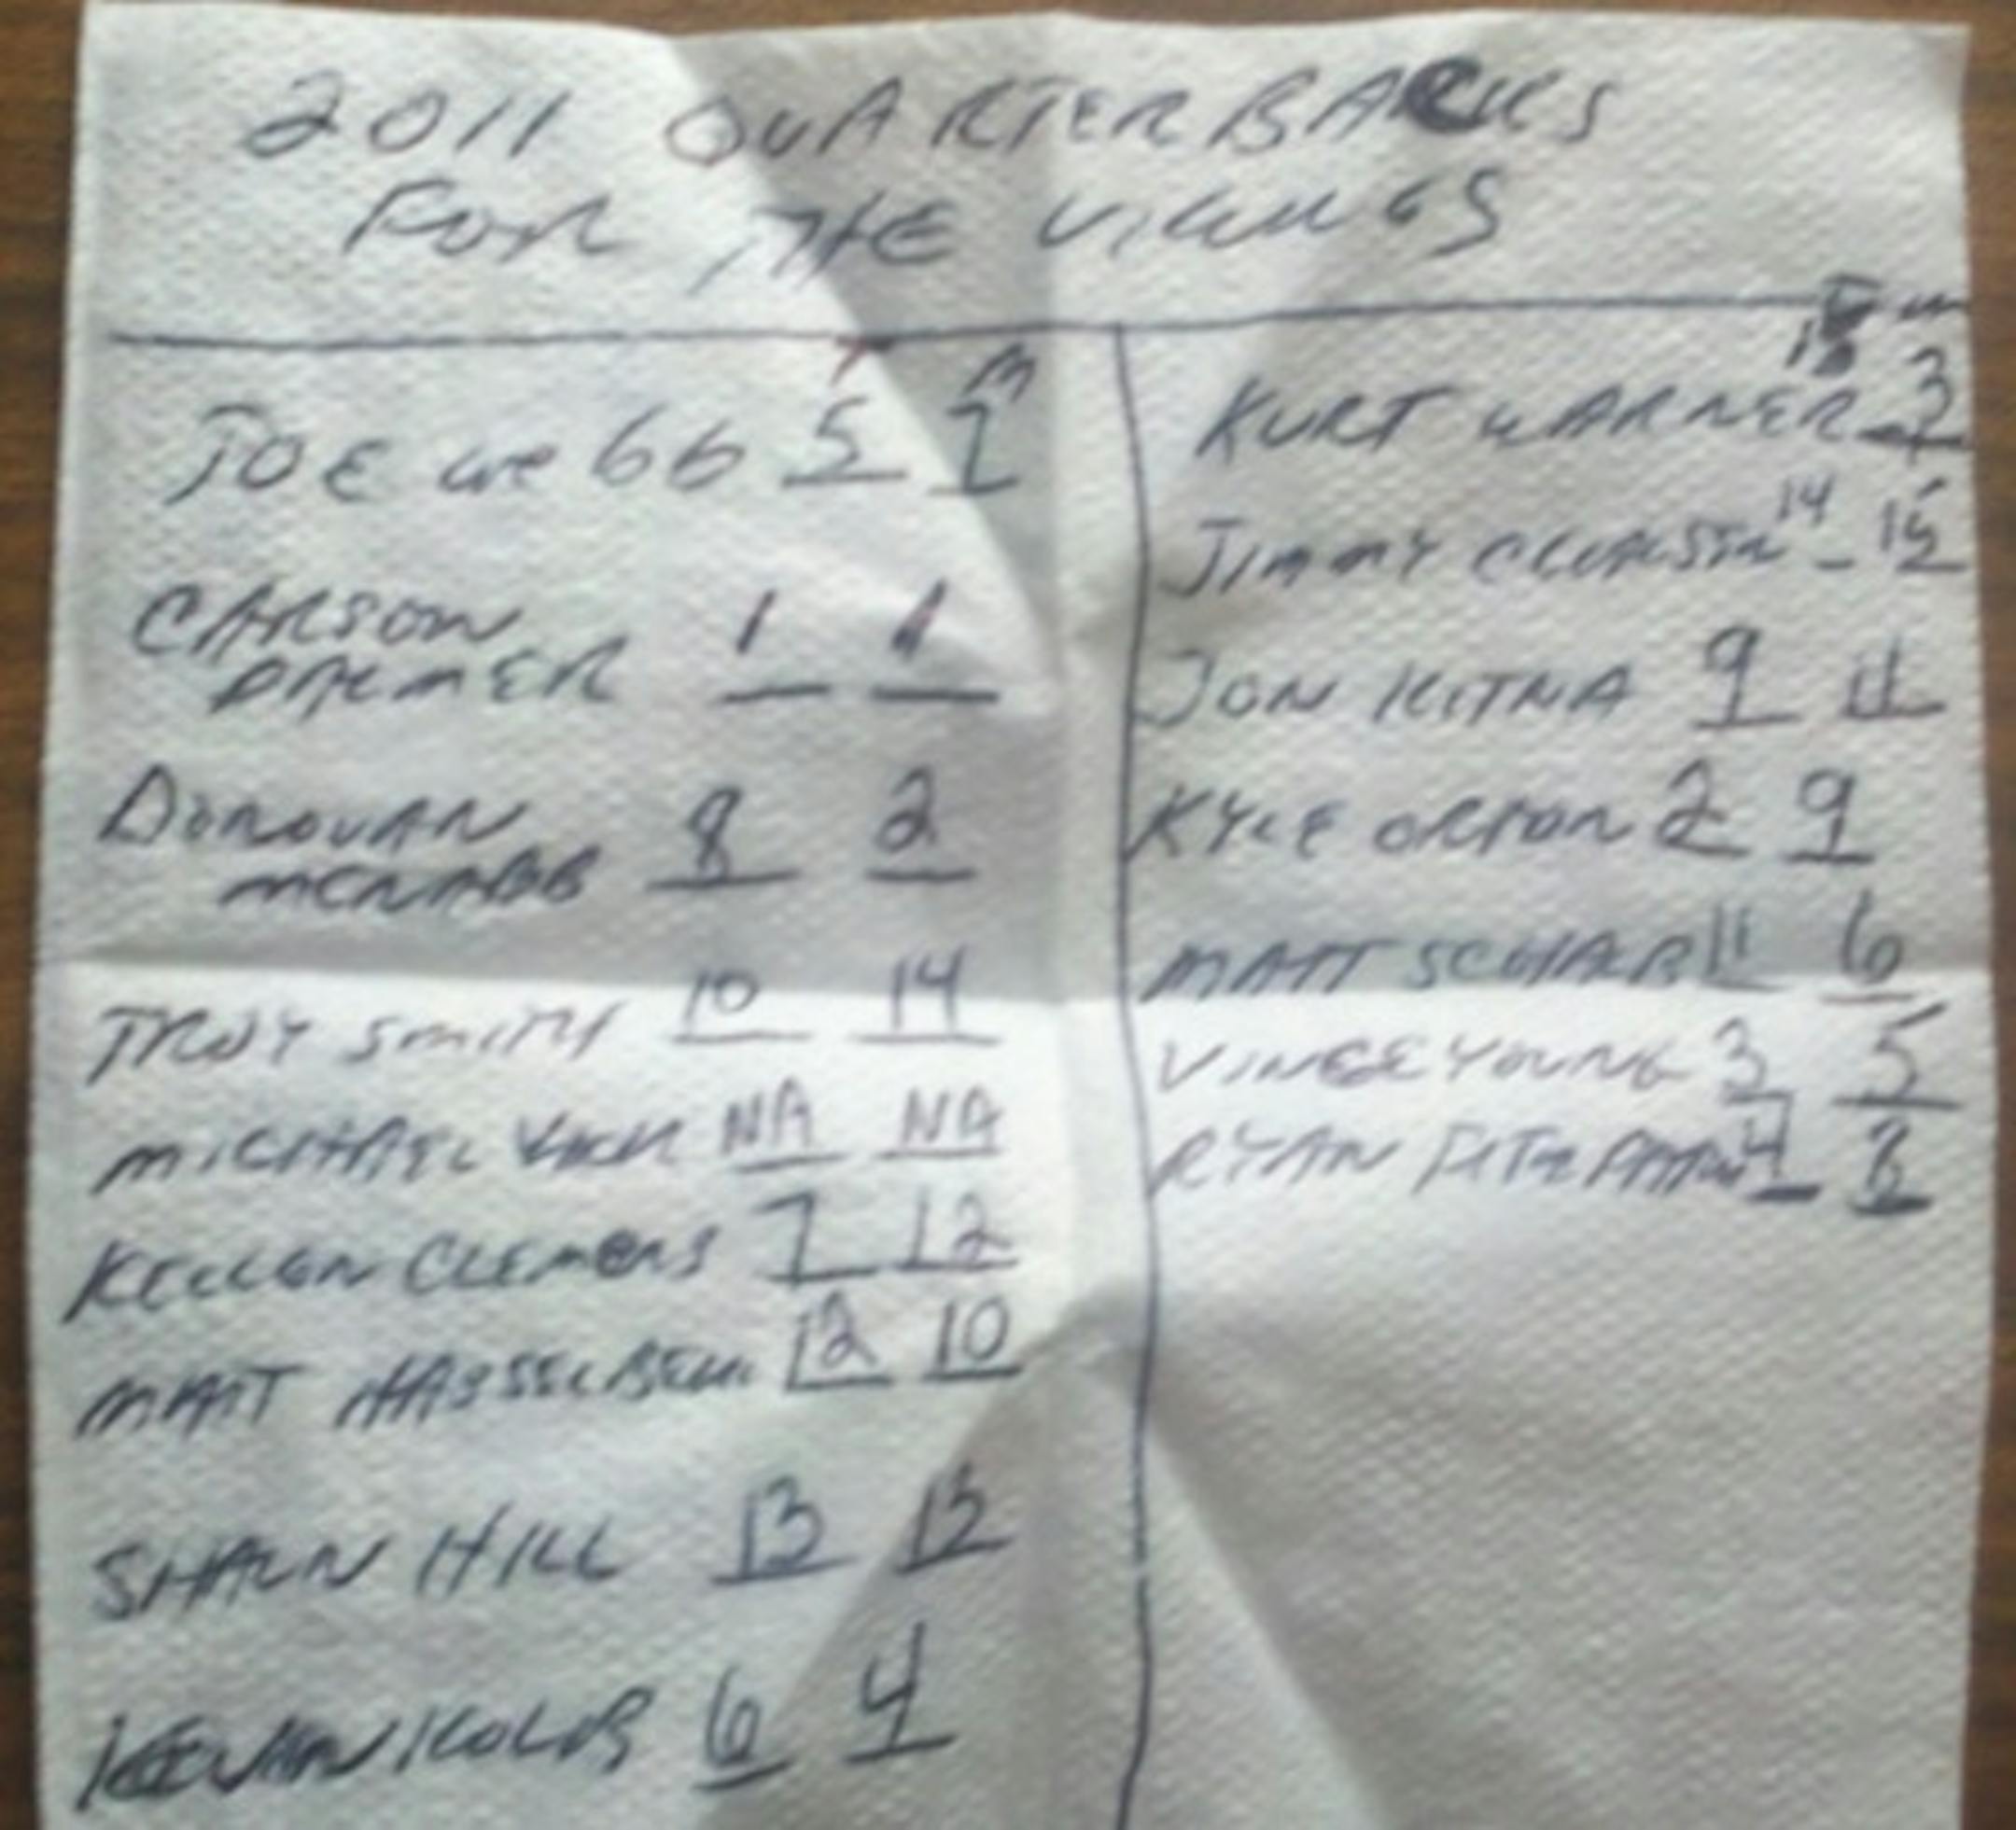 2011 QUARTERBACKS
FOR THE VIKINGS
M
JOE WEBB 5 7
CARSON
PALMER 1 1
DONOVAN
MCNABB 8 2
10 14
TROY SMITH
MICHAEL VICK NA NA
KELLEN CLEMENS 7 12
MATT HASSELBECK 12 10
SHAUN HILL 13 13
KEVIN KOLB 6 4
KURT WARNER 3
JIMMY CLAUSEN 14 15
JON KITNA 9 11
KYLE ORTON 2 9
MATT SCHAUB 11 6
VINCE YOUNG 3 5
RYAN FITZPATRICK 4 8